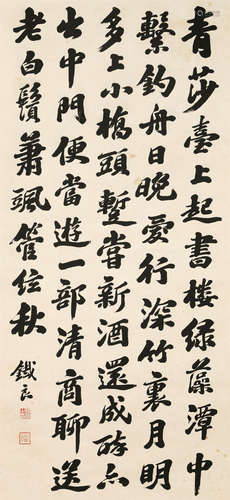 青莎臺上起書樓綠藻潭中
繫釣舟日晚愛行深竹裏月明
多上小橋頭蹔嘗新酒還成醉亦
出中門便當遊一部清商聊送
老白鬚蕭颯管絃秋
鐵良